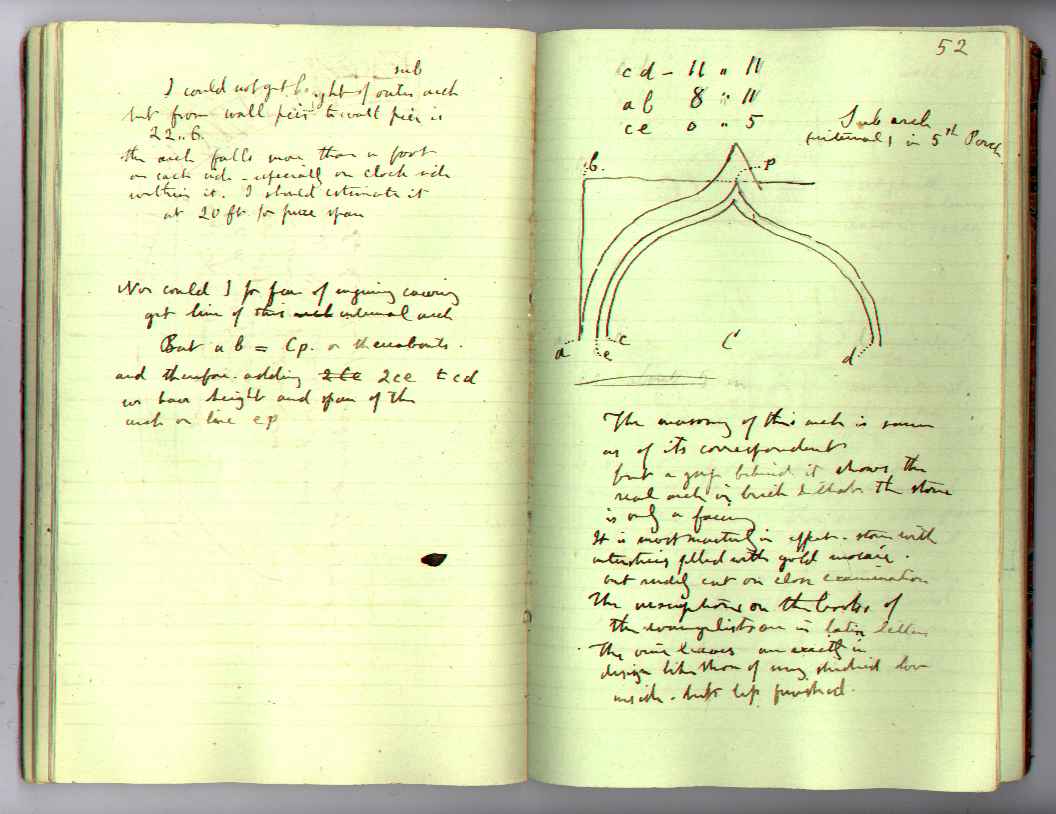 sub
I could not get height of outer arch
but from wall pier to wall pier is
22..6.
the arch falls more than a foot
on each side - especially on clock side
within it. I should estimate it
at 20 ft. for pure span
Nor could I for fear of injuring
get line of this arch internal arch
But a b = Cp. or thereabouts.
and therefore adding 2Ce 2ce to cd
we have height and span of the
arch on line ep
52
cd - 11 " 11
ab 8 " 11
ce 0 " 5
Sub arch
(internal) in 5th Porch
b.
p
a
e
c
C
d
The masonry of this arch is same
as of its correspondent
but a gap behind it shows the
real arch is brick & that the stone
is only a facing
It is most masterly in effect - stone with
interstices filled with gold mosaic.
but rudely cut on close examination
The inscriptions on the books of
the evangelists are in latin letters
The vine leaves are exactly in
design like those of my studied door
inside - but less finished.